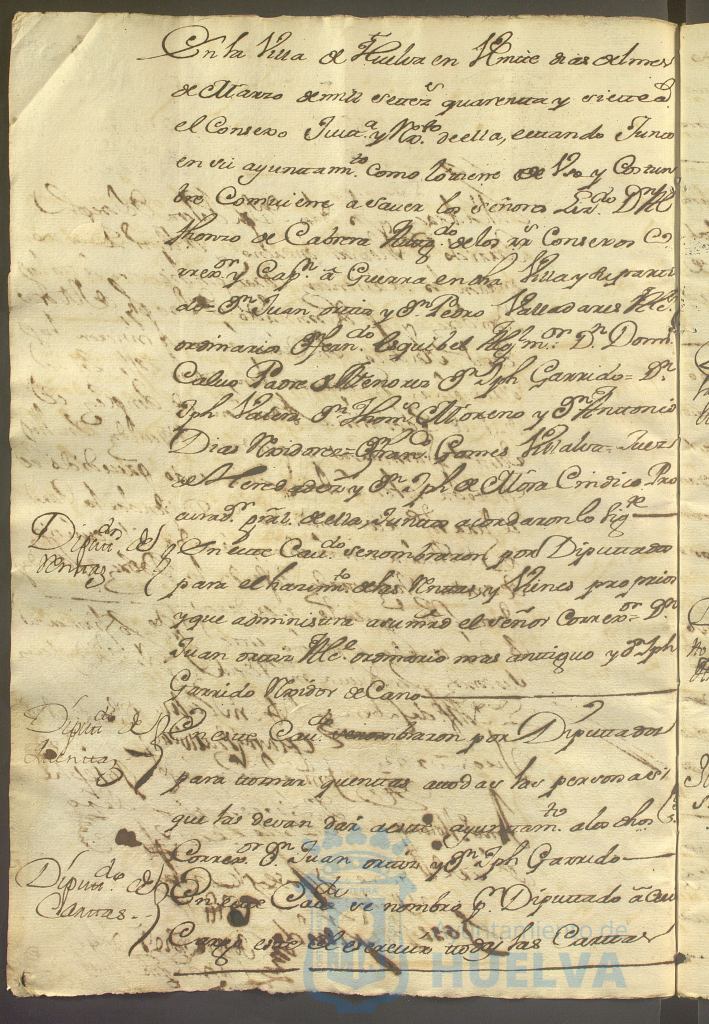 En la Villa de Huelva en Veinte dias del mes
de Marzo de mill setez.s quarenta y siette a.s
el Consexo Just.a y Rex.to de ella, estando Junto
en su ayuntam.to como lo tiene de Uso y Costum
bre Combiene a saver los señores Liz.do D.n Al
fhonzo de Cabrera Abog.do de los rr.s Consexos Co
rrex.or y Cap.n a Guerra en dha Villa y su parti
do = D.n Juan ortiz y D.n Pedro Valladares Alc.s
ordinarios D.n fern.do Esquibel Alg.l m.or D.n Domi.o
Calvo Padre de Menores D.n Jph Garrido = D.n
Jph Valera D.n Thom.s Moreno y D.n Antonio
Dias Rexidores = D.n Fran.co Gomes Villalva = Juez
de Heredades y D.n Jph de Mora Cindico Pro
curad.r gral. de ella, Juntos acordaron lo sig.te
Diputt.dos de
Renttas
y En este Cav.do se nombraron por Diputtados
para el hazim.to de las Renttas, y Vienes proprios
y que administra asumto el señor Correx.or D.n
Juan ortiz Alc.e ordinario mas antiguo y D.n Jph
Garrido Rexidor deCano
Diputt.dos de
quenttas
En este Cav.do se nombraron por Diputtados
para tomar quenttas a todas las personas
que las devan dar a este ayunttam.to a los dhos S.s
Correx.or D.n Juan ortiz y D.n Jph Garrido
Diputt.do de
Carttas
En este Cav.do se nombro p.r Diputtado a
Cargo este el escrivir todas las Carttas
Ayuntamiento de
HUELVA